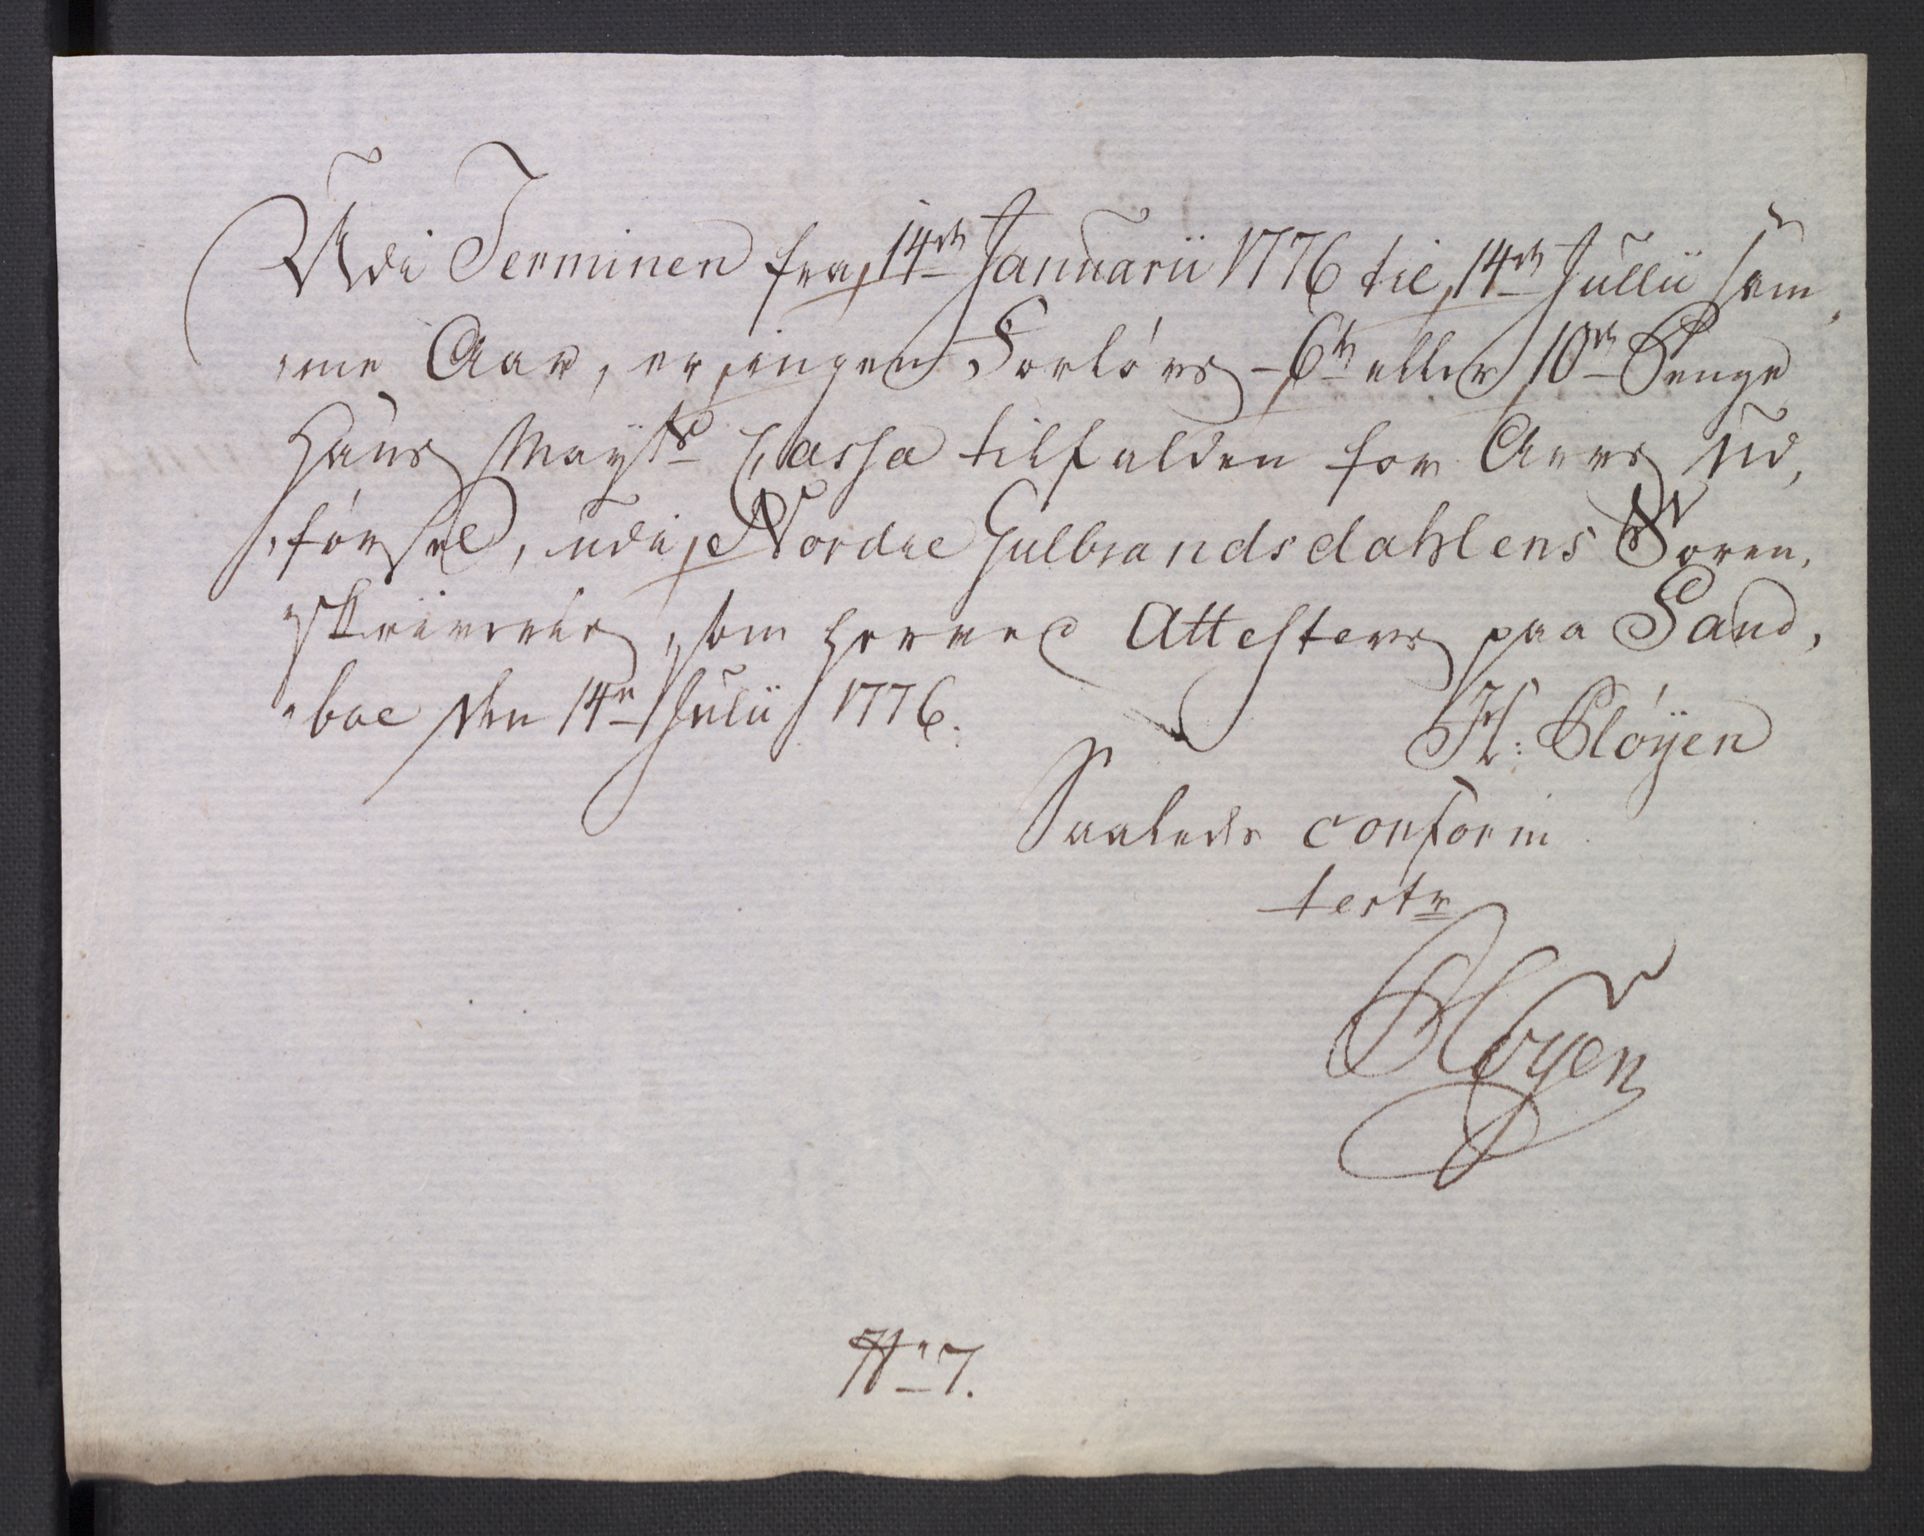 Udi Terminen fra 14de Januarii 1776 til 14de Jullii sam¬
me Aar, er ingen Forlovs 6te eller 10de Penge
Hans Mayts Cassa tilfalden for Arvs Ud¬
førsel, udi Nordre Gulbrandsdahlens Soren¬
skriverie, som herved Attesteres paa Sand¬
boe den 14e Julii 1776.
H: Pløÿen
Saaledes conform
test:
Pløyen
No 7.